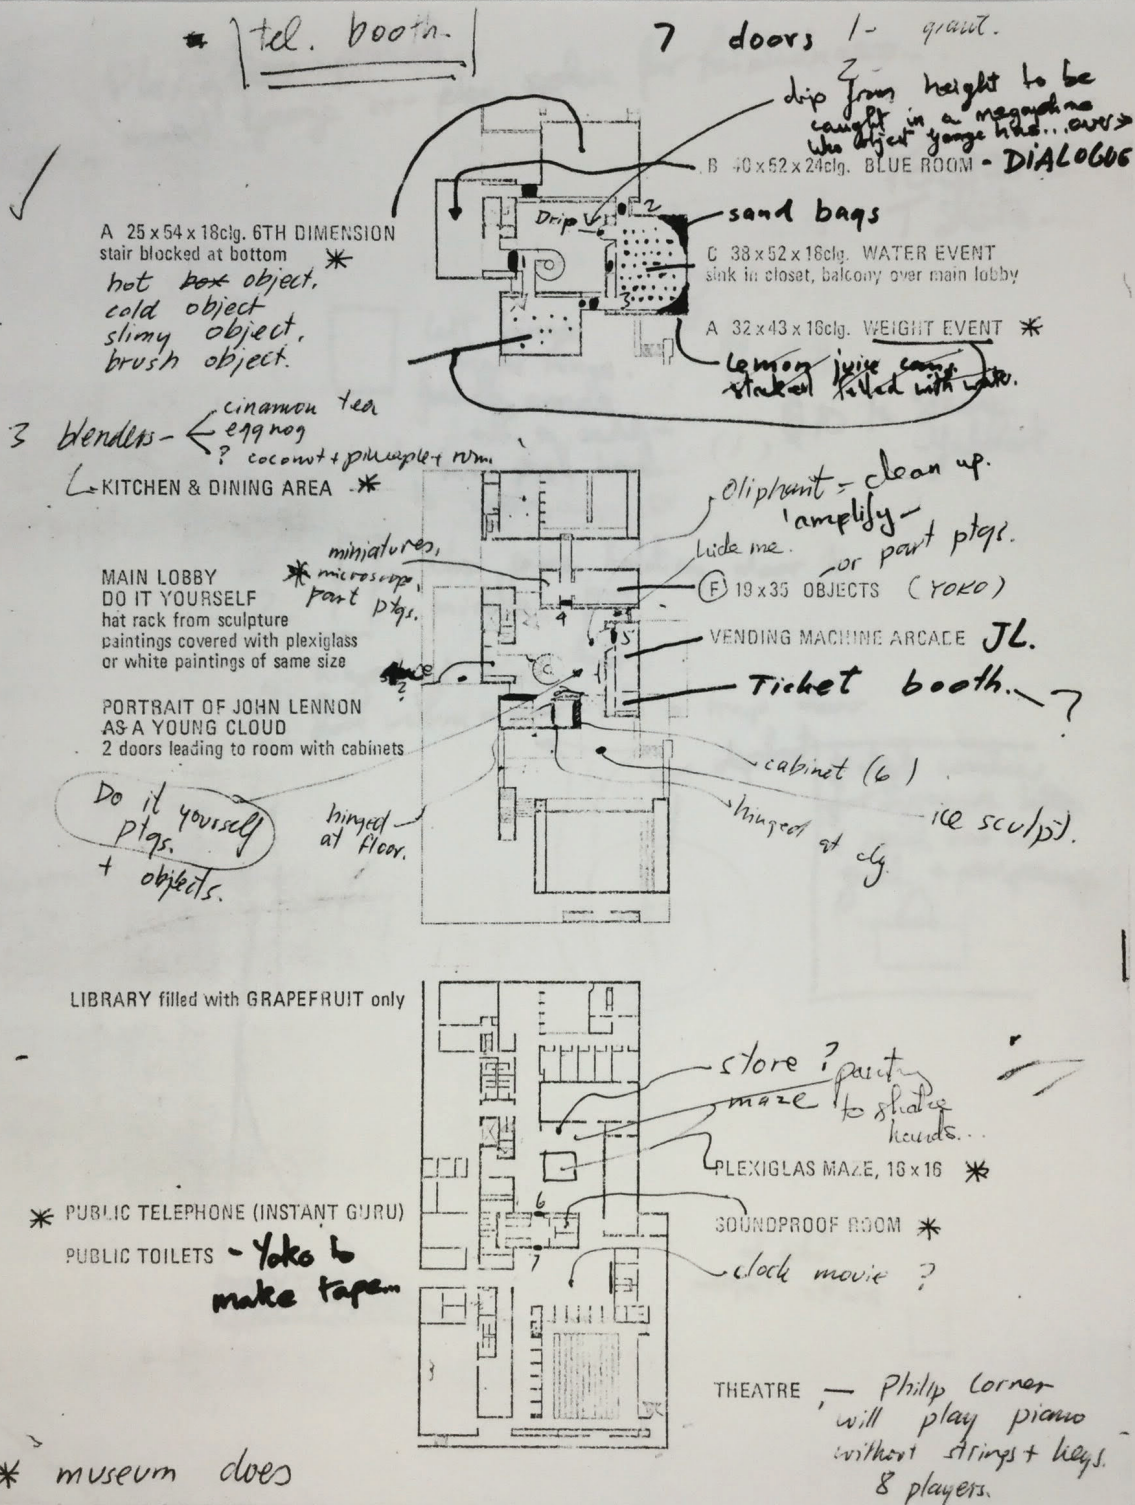 tel. booth.
7 doors 1- giant.
2
drip from height to be
caught in a megaphone
who object george has...over
B 40x52x24clg. BLUE ROOM - DIALOGUE
Drip
2
sand bags
A 25x54x18clg. 6TH DIMENSION
stair blocked at bottom *
hot box object.
cold object
slimy object.
brush object.
C 38x52x18clg. WATER EVENT
sink in closet, balcony over main lobby
3
A 32x43x16clg. WEIGHT EVENT *
Lemon juice cans.
stacked filled with water.
3 blenders-
cinamon tea
egg nog
? coconut + pineaple + rum.
KITCHEN & DINING AREA *
Oliphant = clean up.
amplify-
hide me.
or part ptgs.
miniatures,
* microscope,
part ptgs.
F 19x35 OBJECTS (YOKO)
4
5
MAIN LOBBY
DO IT YOURSELF
hat rack from sculpture
paintings covered with plexiglass
or white paintings of same size
VENDING MACHINE ARCADE JL.
Ticket booth. ?
?
PORTRAIT OF JOHN LENNON
AS A YOUNG CLOUD
2 doors leading to room with cabinets
cabinet (6)
Do it yourself
ptgs.
+ objects.
hinged
at floor.
hinged at clg
ice sculpt.
LIBRARY filled with GRAPEFRUIT only
store ?
maze
to shake
hands...
PLEXIGLAS MAZE, 16x16 *
* PUBLIC TELEPHONE (INSTANT GURU)
6
SOUNDPROOF ROOM *
PUBLIC TOILETS - Yoko to
make tape...
7
clock movie ?
THEATRE - Philip Corner
will play piano
without strings + keys.
8 players.
* museum does